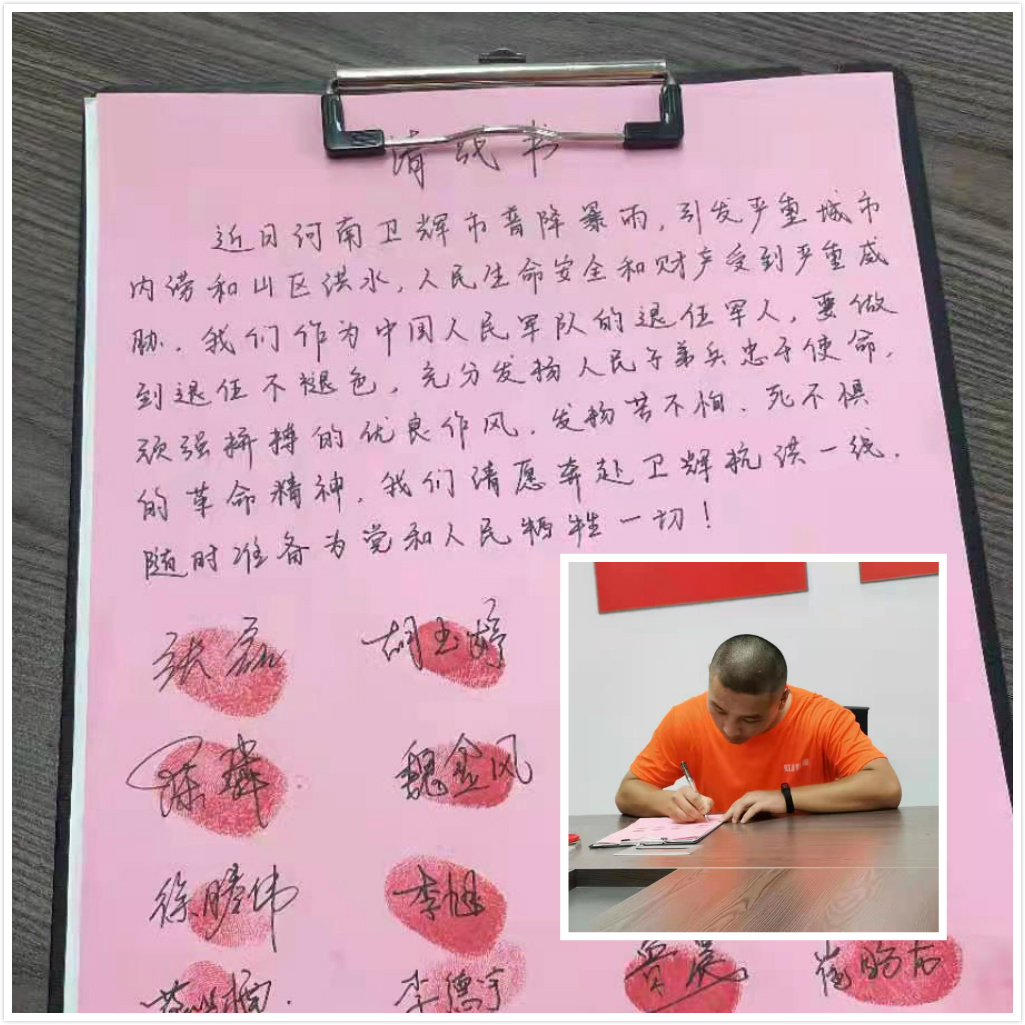 请战书
近日河南卫辉市普降暴雨，引发严重城市
内涝和山区洪水，人民生命安全和财产受到严重威
胁。我们作为中国人民军队的退伍军人，要做
到退伍不褪色，充分发扬人民子弟兵忠于使命，
顽强拼搏的优良作风，发扬苦不怕、死不惧
的革命精神，我们请愿奔赴卫辉抗洪一线，
随时准备为党和人民牺牲一切！
张磊 胡玉婷
魏金风
李旭
李德宇